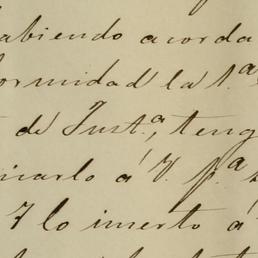 abiendo acorda
ormidad la 1.ª
de Just.ª, teng
inarlo á V. p.ª
7 lo inserto á